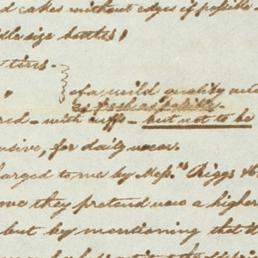 d cakes without edges if possible
dle size bottles,
of a mild quality
as fresh as possible
red - with ruffs - but not to be
nsive, for daily wear.
arged to me by Mess.rs Riggs
they pretend now a higher
but by mentioning that